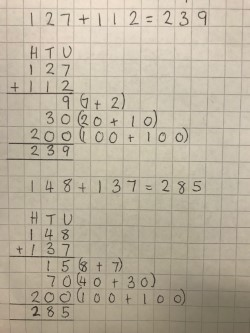 127+112=239
HTU
127
+112
9(7+2)
30(20+10)
200(100+100)
239
148+137=285
HTU
148
+137
15(8+7)
70(40+30)
200(100+100)
285